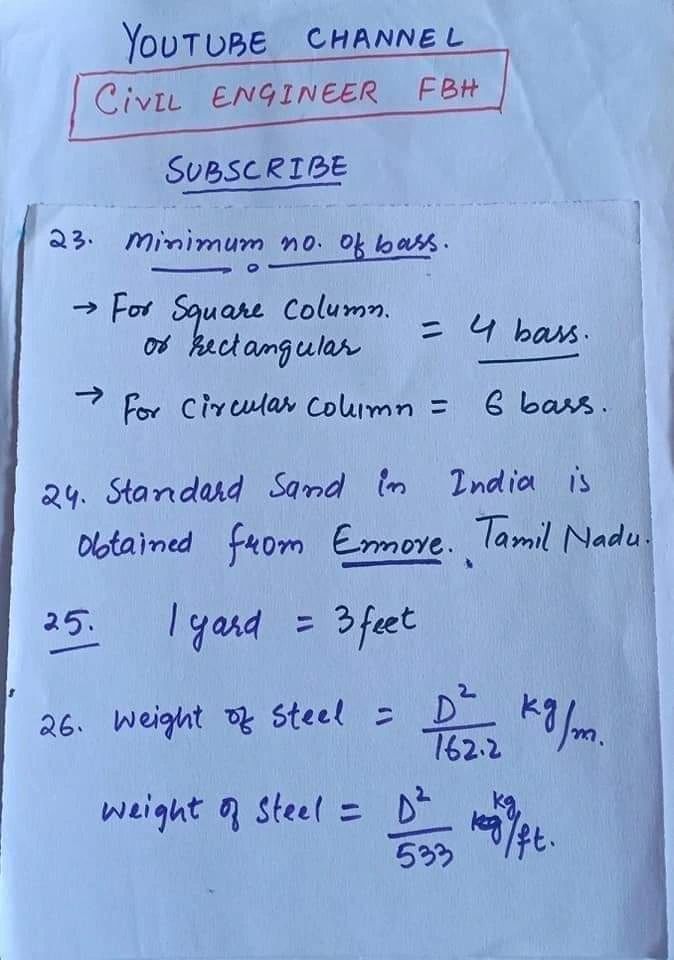 YOUTUBE CHANNEL
CIVIL ENGINEER FBH
SUBSCRIBE
23. Minimum no. of bars.
→ For Square Column. = 4 bars.
or Rectangular
→ For Circular Column = 6 bars.
24. Standard Sand in India is
Obtained from Ennore. Tamil Nadu.
25. 1 yard = 3 feet
26. Weight of Steel = D²/162.2 kg/m.
Weight of Steel = D²/533 kg/ft.